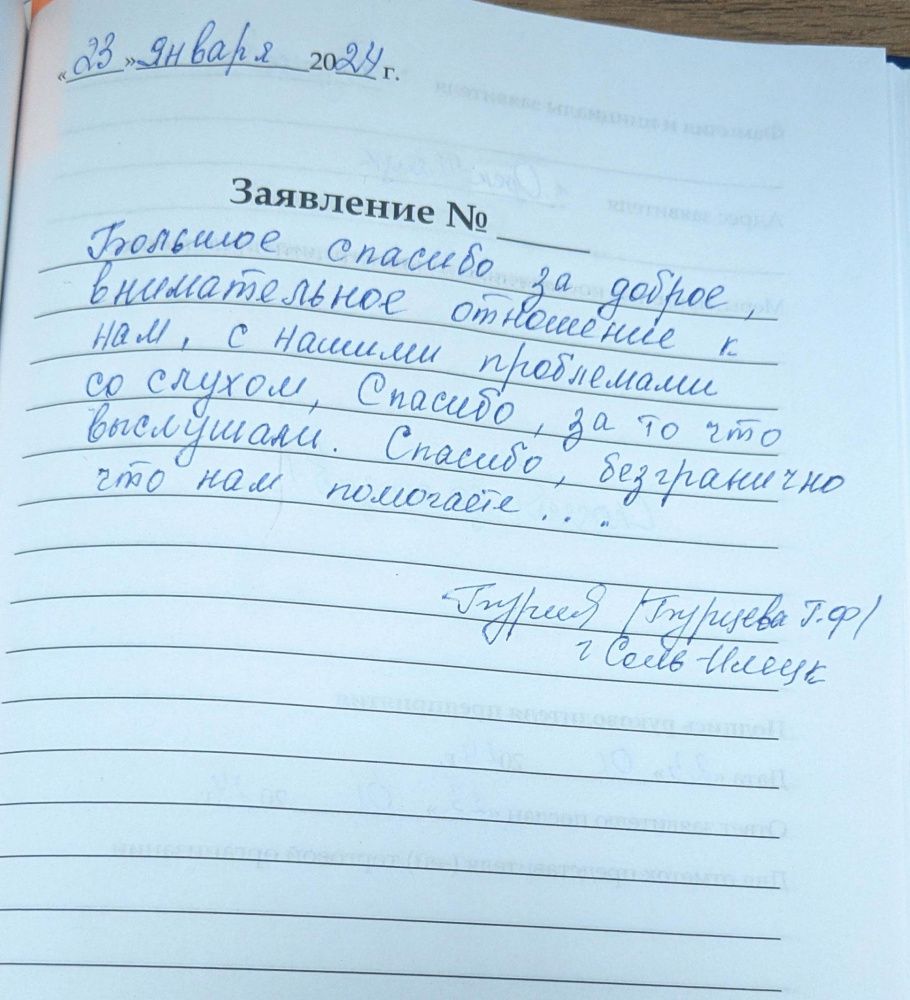 «23» января 2024 г.
Заявление №
Большое спасибо за доброе,
внимательное отношение к
нам, с нашими проблемами
со слухом, Спасибо, за то что
выслушали. Спасибо, безгранично
что нам помогаете ...
/Бурцева Г.Ф/
г Соль-Илецк